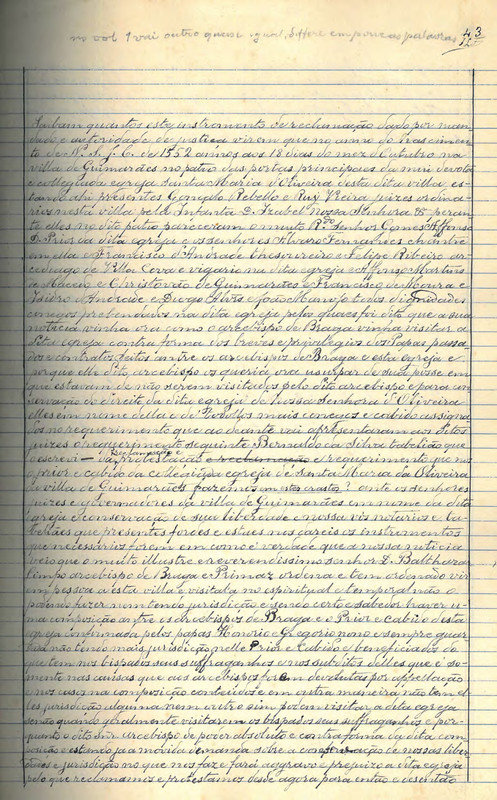 no vol 1 vai outro quasi igual, differe em poucas palavras
43
Saibam quantos este instromento de reclamação dado por man-
dado e autoridade de justiça virem que no anno do Nascimen-
to de N. S. J. C. de 1552 annos aos 18 dias do mez d'Outubro na
villa de Guimarães no patio das portas principaes da mui devota
e collegiada egreja Santa Maria d'Oliveira desta dita villa, es-
tando ahi presentes Gonçalo Rebello e Ruy Vieira juizes ordina-
rios nesta villa pela Infanta D. Izabel Nossa Senhora & peran-
te elles no dito patio pareceram o muito Rdo Senhor Gomes Affonso
D. Prior da dita egreja e os senhores Alvaro Fernandes chantre
em ella e Francisco d'Andrade thesoureiro e Felipe Ribeiro ar-
cediago de Villa Cova e vigario na dita egreja Affonso Martins
de Macedo e Christovão de Guimarães e Francisco de Moura e
Isidro d'Andrade e Diogo Alvs e João Manojo todos dignidades
conegos prebendados na dita egreja pelos quaes foi dito que a sua
noticia vinha ora como o arcebispo de Braga vinha visitar a
dita egreja contra forma dos breves e privilegios dos Papas passa-
dos e contratos feitos antre os arcebispos de Braga e esta egreja e
porque elle dito arcebispo os queria ora usurpar de sua posse em
que estavam de não serem visitados pelo dito arcebispo e para con-
servação do direito da dita egreja de Nossa Senhora d'Oliveira
elles em nome della e de todolos mais conegos e cabido assigna-
dos no requerimento que ao deante vai apresentaram aos ditos
juizes o requerimento seguinte Bernaldo da Silva tabelião que
o escrevi — Da protestação e reclamação e requerimento que nos
o prior e cabido da collegiada egreja de Santa Maria da Oliveira
da villa de Guimarães fazemos em ante os senhores
juizes e governadores da villa de Guimarães em nome da dita
egreja e conservação de sua liberdade e nossa vis notarios e ta-
beliães que presentes fordes e estaes nos dareis os instromentos
que necessarios forem em como é verdade que a nossa noticia
veio que o muito illustre e reverendissimo senhor D. Balthezar
Limpo arcebispo de Braga e Primaz ordena e tem ordenado vir
em pessoa a esta villa e visitala no espiritual e temporal não o
podendo fazer nem tendo jurisdição e sendo certo e sabedor haver u-
ma composição antre os arcebispos de Braga e o Prior e cabido desta
egreja confirmada pelos papas Honorio e Gregorio nono e sempre guar-
dada não tendo mais jurisdição nelle Prior e Cabido e beneficiados do
que tem nos bispados seus suffraganhos e nos subditos delles que é so-
mente nas causas que aos arcebispos forem devolutas por apellação
e nos casos na composição conteudos e em outra maneira não tem el-
les jurisdição alguma nem outro sim podem visitar a dita egreja
senão quando geralmente visitarem os bispados seus suffraganhos e por-
quanto o dito snr. arcebispo de poder absoluto e contra forma da dita com-
posição e estando já movida demanda sobre a conservação de nossas liber-
dades e jurisdição no que nos faz e fará aggravo e prejuizo a dita egreja
pelo que reclamamos e protestamos desde agora para então e desentão